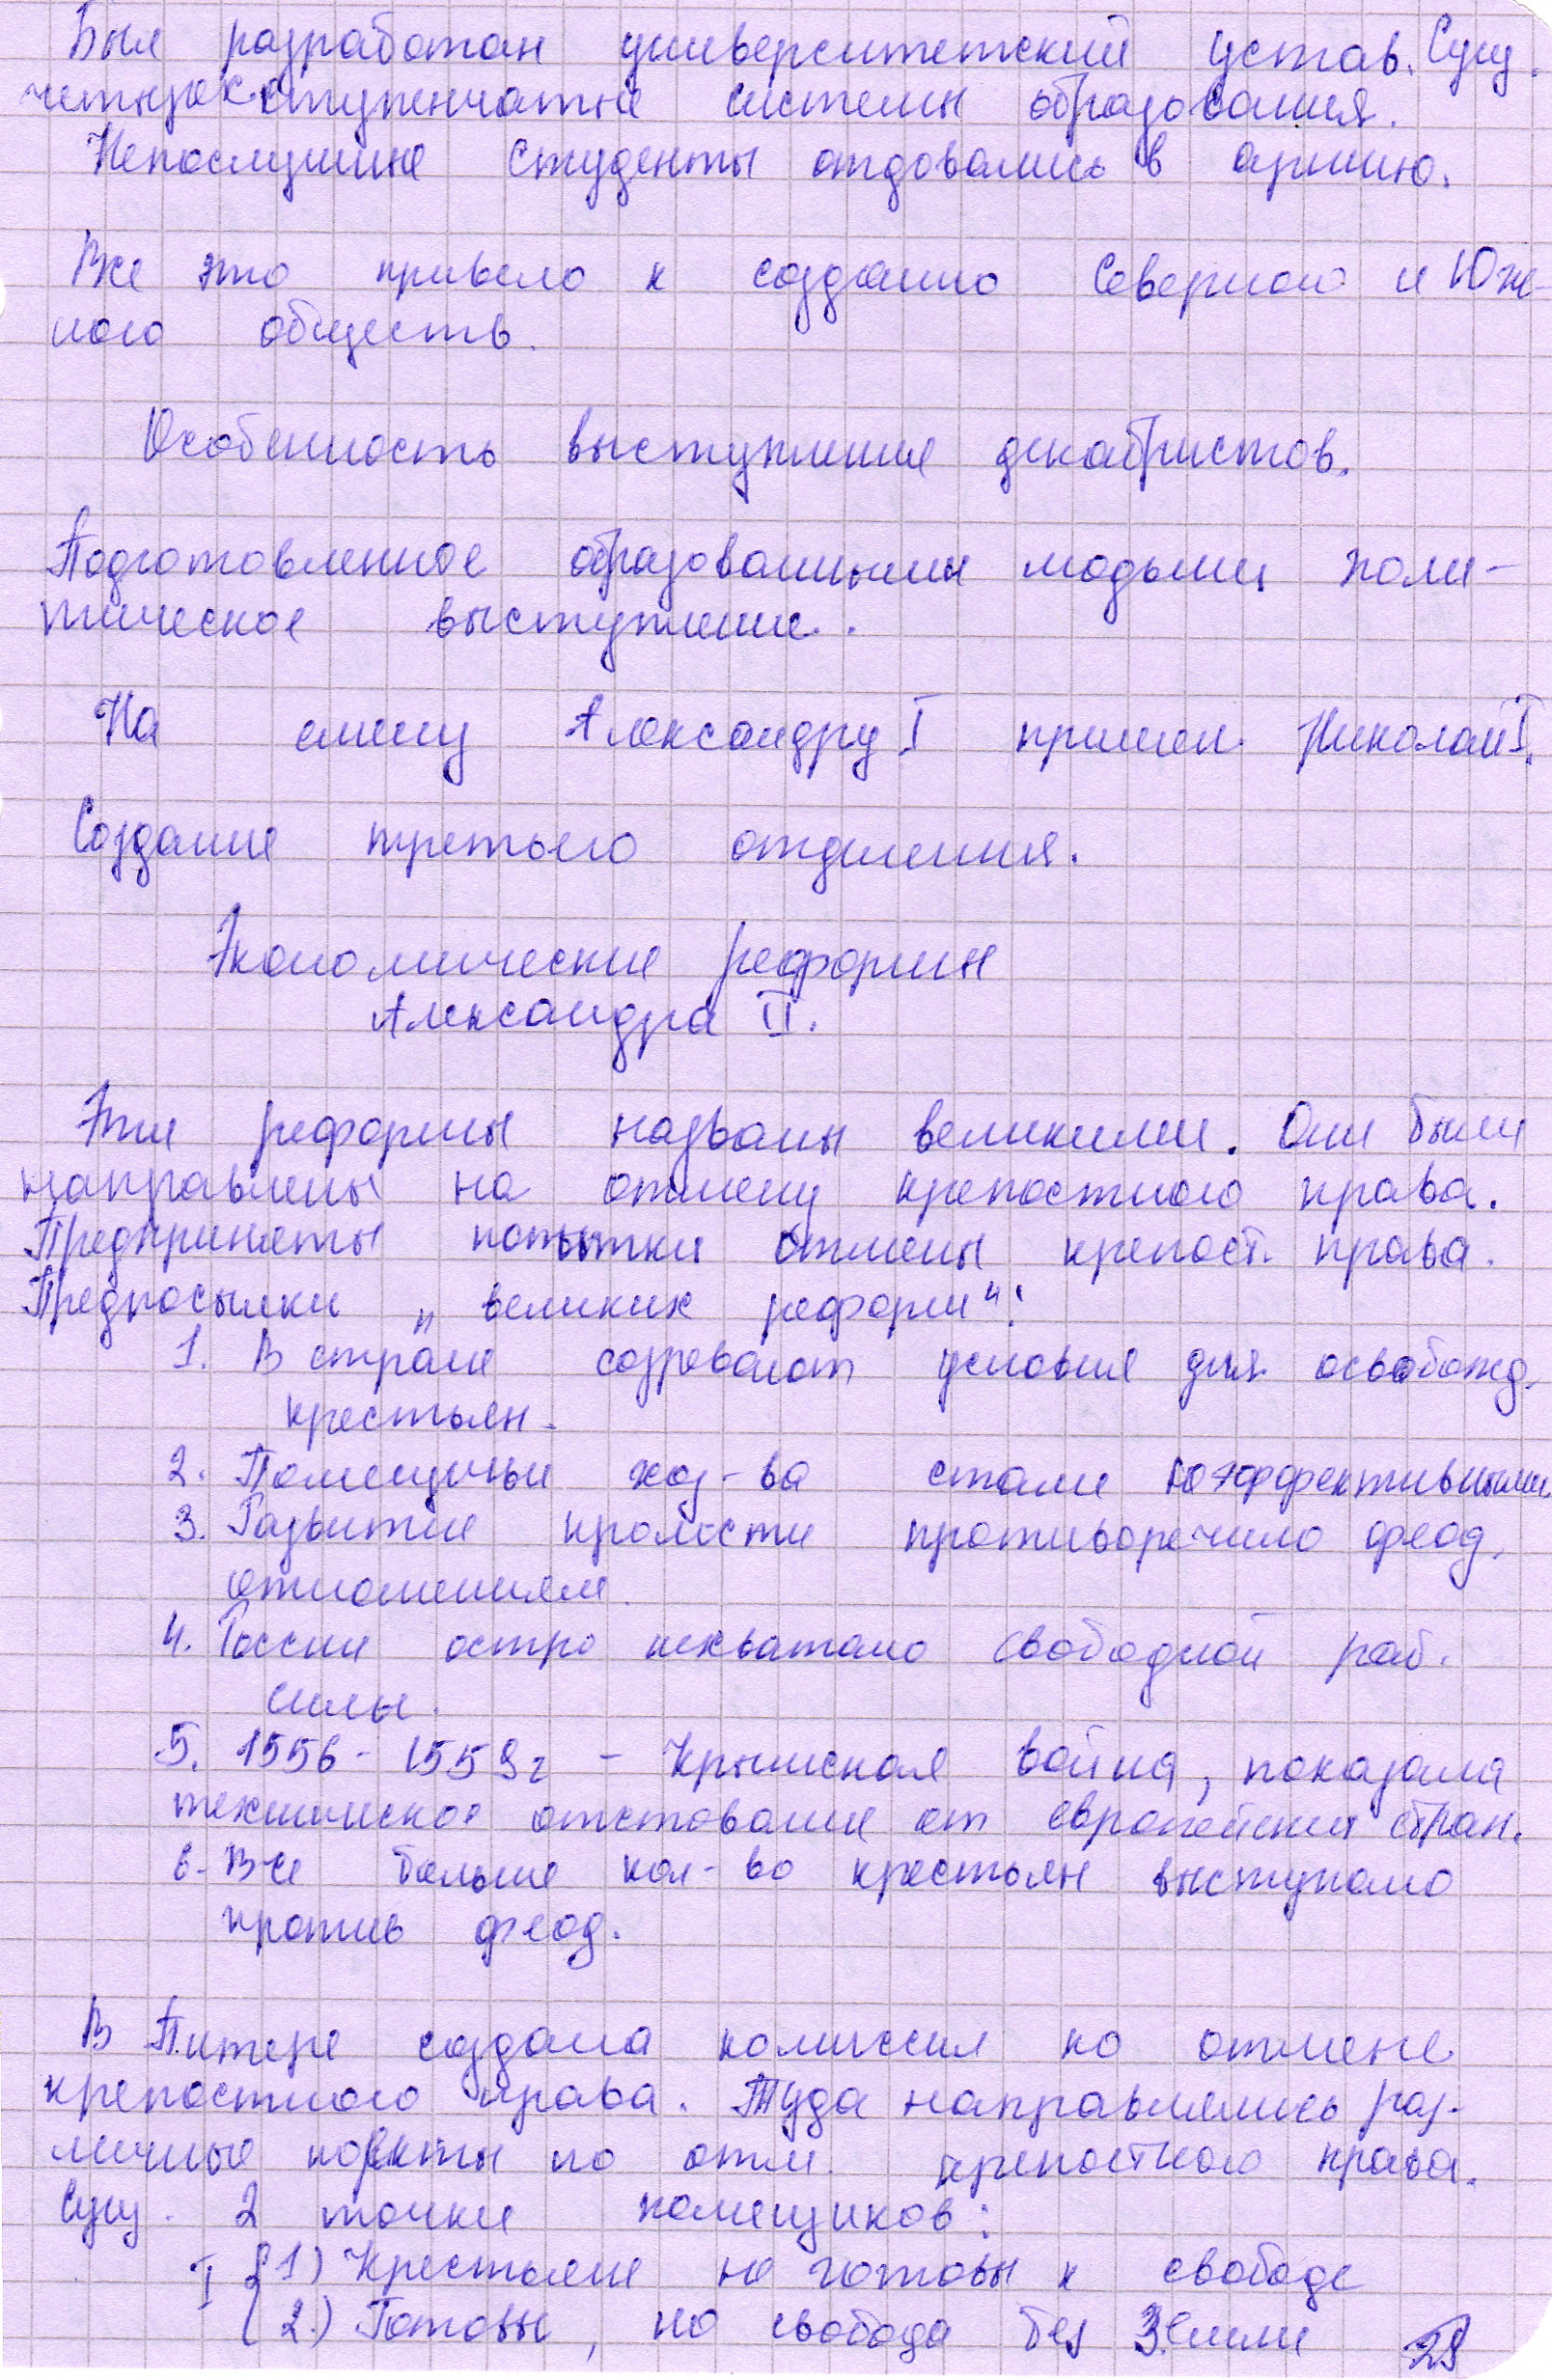 Был разработан университетский устав. Сущ.
четырехступенчатые системы образования.
Непослушные студенты отдовались в армию.
Все это привело к созданию Северного и Юж-
ного обществ.
Особенность выступления декабристов.
Подготовленное образованными людьми поли-
тическое выступление.
На смену Александру I пришел Николай I.
Создание третьего отделения.
Экономические реформы
Александра II.
Эти реформы названы великими. Они были
направлены на отмену крепостного права.
Предприняты попытки отмены крепост. права.
Предпосылки „великих реформ":
1. В стране созревают условия для освобожд.
крестьян.
2. Помещичьи хоз-ва стали неэффективными.
3. Развитие пром-сти противоречило феод.
отношениям.
4. России остро нехватало свободной раб.
силы.
5. 1556 - 1559 г - Крымская война, показала
техническое отставание от европейских стран.
6. Все больше кол-во крестьян выступало
против феод.
В Питере создана комиссия по отмене
крепостного права. Туда направлялись раз-
личные по отм. крепостного права.
Сущ. 2 точки помещиков:
I { 1) Крестьяне не готовы к свободе
2.) Готовы, но свобода без Земли